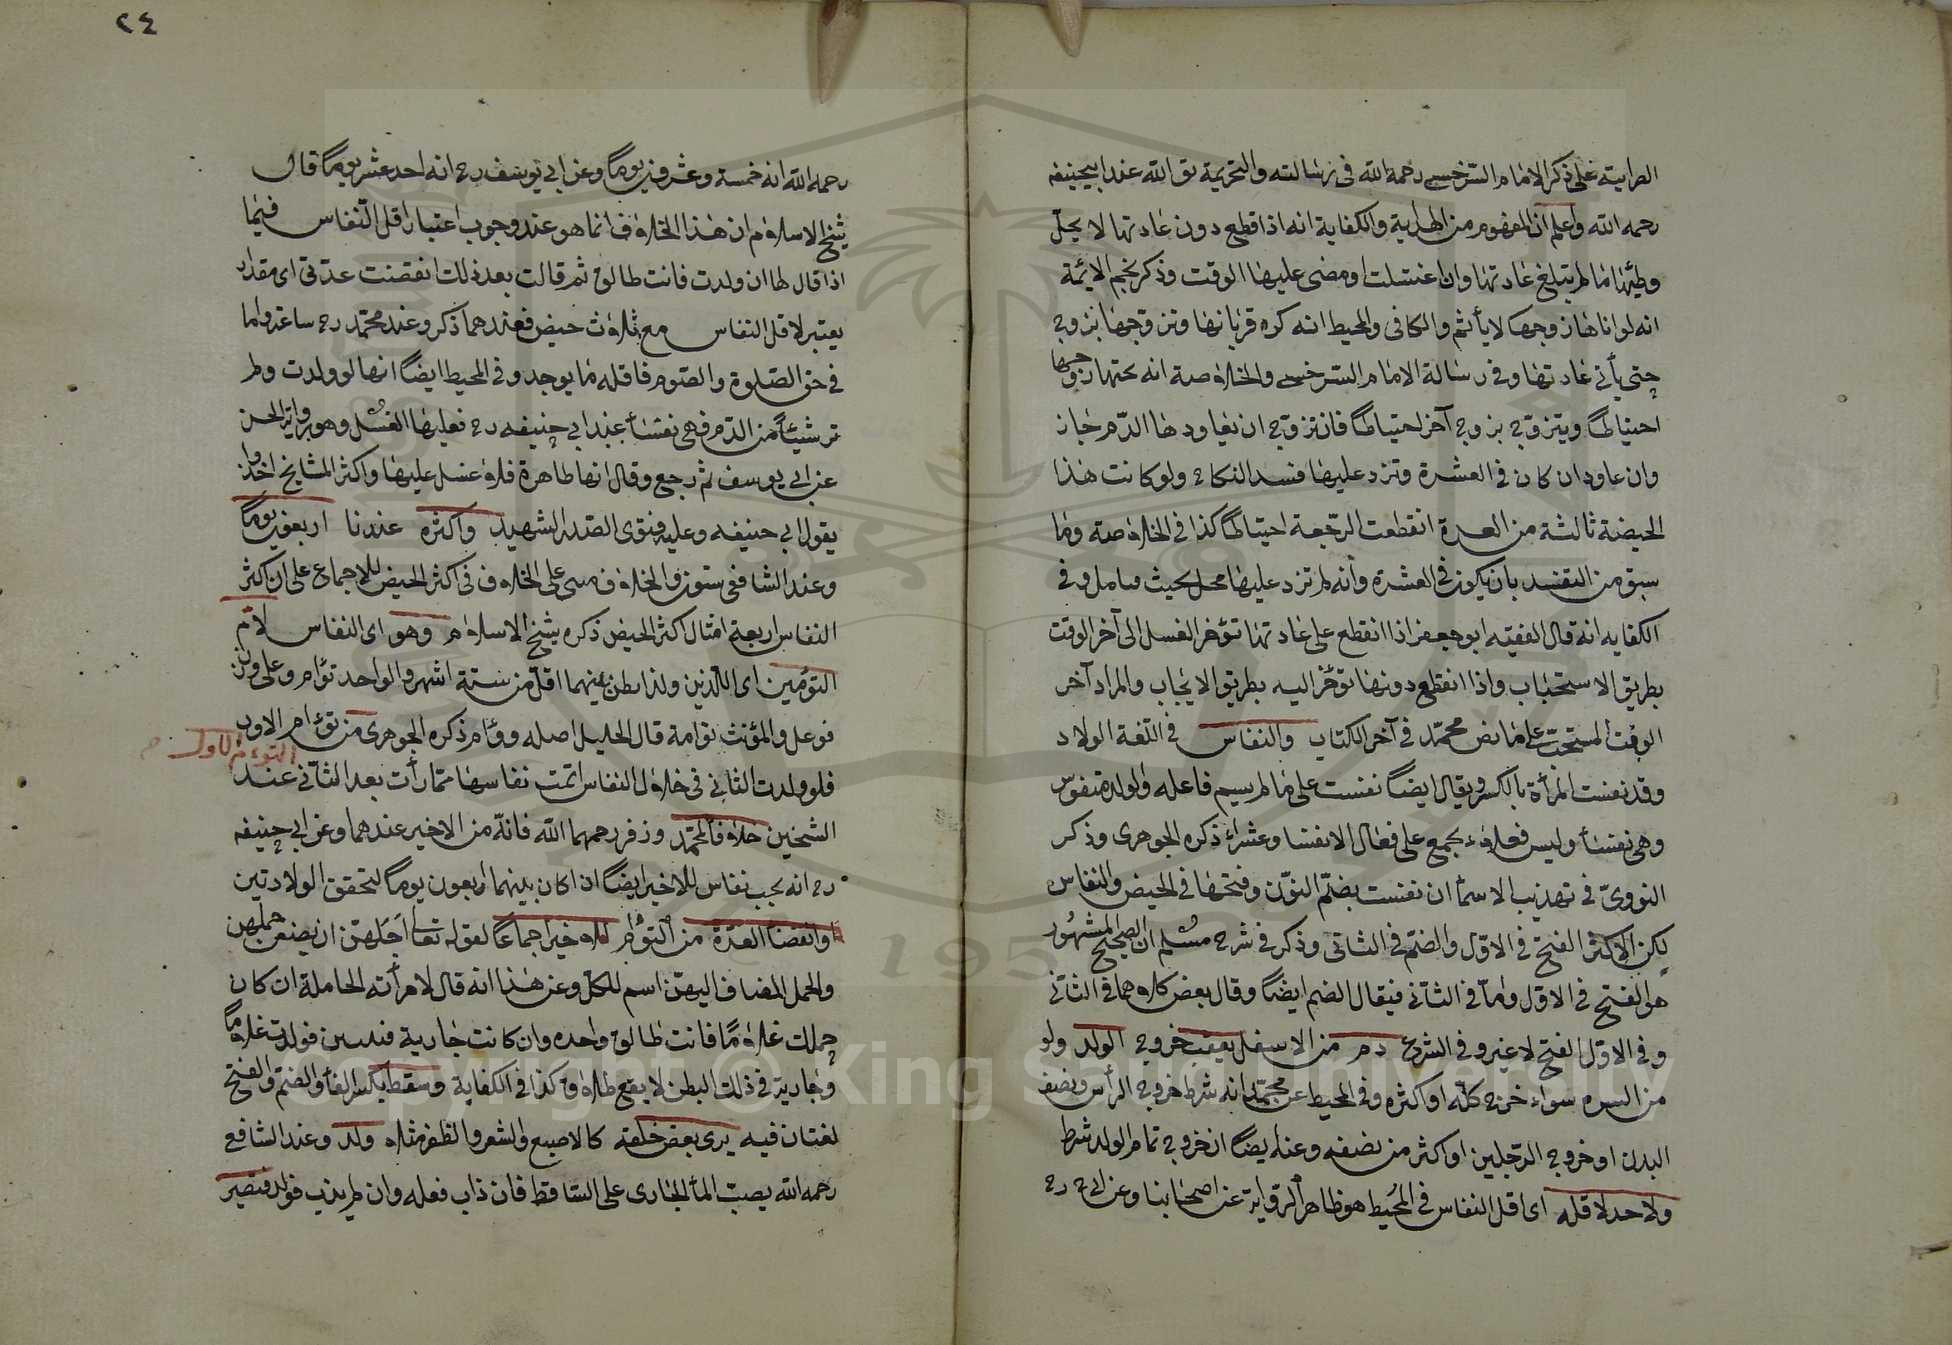 على ذكر الامام السرخسي رحمه الله في رسالته والتحريمة عند ابيحنيفه
رحمه الله واعلم ان المفهوم من الهداية والكفاية انه اذا قطع دون عادتها لا يحل
وطئها ما لم يتبلغ عادتها وان اغتسلت او مضى عليها الوقت وذكر نجم الايمة
انه لو اتاها زوجها لا يأثم والكافى والمحيط انه كره قربانها وتزوجها بزوج
حتى يأتى عادتها وفى رسالة الامام السرخسي والخلاصة انه يجتهارجها
احتياطا ويتزوج بزوج آخر احتياطا فان تزوج ان يعاودها الدم جاز
وان عاود ان كان فى العشرة وتزد عليها فسد النكاح ولو كانت هذا
الحيضة ثالثة من العدة انقطعت الرجعة احتياطا كذا فى الخلاصة وما
سبق من التقييد بان يكون فى العشرة وانه لم تزد عليها محل بحيث وفى
الكفايه انه قال الفقيه ابو جعفر اذا انقطع على عادتها تؤخر الغسل الى آخر الوقت
بطريق الاستحباب واذا انقطع دونها تؤخر اليه بطريق الايجاب والمراد آخر
الوقت المستحب على ما نص محمد فى آخر الكتاب والنفاس فى اللغة الولاد
وقد نفست المرأة بالكسر ويقال ايضا نفست على ما لم يسم فاعله والولد منفوس
وهى نفسأ وليس فعلاء يجمع على فعال الا نفسا وعشراء ذكره الجوهرى وذكر
النووى فى تهذيب الاسمأ ان نفست بضم النون وفتحها فى الحيض والنفاس
لكن الاكثر الفتح فى الاول والضم فى الثانى وذكر فى شرح مسلم ان الصحيح المشهور
هو الفتح فى الاول واما فى الثانى فيقال الضم ايضا وقال بعض كلاهما فى الثانى
وفى الاول الفتح لا غير وفى الشرع دم من الاسفل يعقب خروج الولد ولو
من السره سواء خرج كله او اكثره وفى المحيط عن محمد انه شرط خروج الرأس ونصف
البدن او خروج الرجلين او اكثر من نصفه وعنه ايضا ان خروج تمام الولد شرط
ولا حد لاقله اى اقل النفاس فى المحيط هو ظاهر الرواية عن اصحابنا وعن ابى ح رح
٢٤
رحمه الله انه خمسة وعشرون يوما وعن ابى يوسف رح انه احد عشر يوما قال
شيخ الاسلام ان هذا الخلاف انما هو عند وجوب اعتبار اقل النفاس فيما
اذا قال لها ان ولدت فانت طالق ثم قالت بعد ذلك انقضت عدتى اى مقدار
يعتبر لاقل النفاس مع ثلاث حيض فعندهما ذكر وعند محمد رح ساعة واما
فى حق الصلوة والصوم فاقله ما يوجد وفى المحيط ايضا انها لو ولدت ولم
تر شيئا من الدم فهى نفسأ عند ابى حنيفه رح فعليها الغسل وهو رواية الحسن
عن ابى يوسف ثم رجع وقال انها طاهرة فلا غسل عليها واكثر المشايخ اخذوا
بقول ابى حنيفه وعليه فتوى الصدر الشهيد واكثره عندنا اربعون يوما
وعند الشافعى ستون والخلاف مبنى على الخلاف فى اكثر الحيض للاجماع على ان اكثر
النفاس اربعة امثال اكثر الحيض ذكره شيخ الاسلام وهو اى النفاس لام
التوأمين اى اللذين ولدا بطن بينهما اقل من ستة اشهر والواحد توأم وعلى وزن
فوعل والمؤنث توامة قال الخليل اصله ووأم ذكره الجوهرى من توأم الاول
التوءم الاول
فلو ولدت الثانى فى خلال النفاس اتمت نفاسها مما رأت بعد الثانى عند
الشيخين خلافا لمحمد وزفر رحمهما الله فانه من الاخير عندهما وعن ابى حنيفه
رح انه يجب نفاس للاخير ايضا اذا كان بينهما اربعون يوما لتحقق الولادتين
وانقضأ العدة من التوأم الاخير اجماعا لقوله تعالى اجلهن ان يضعن حملهن
والحمل المضاف اليهن اسم للكل وعن هذا انه قال لامرأته الحاملة ان كان
حملك غلاما فانت طالق واحده وان كانت جارية فولدت غلاما
وجارية فى ذلك البطن لا يقع طلاق كذا فى الكفاية وسقط بكسر الفأ والضم والفتح
لغتان فيه يرى بعض خلقه كالاصبع والشعر والظفر مثلا ولد وعند الشافعى
رحمه الله يصب المأ الجارى على الساقط فان ذاب فعله وان لم يذب فولد فتصير